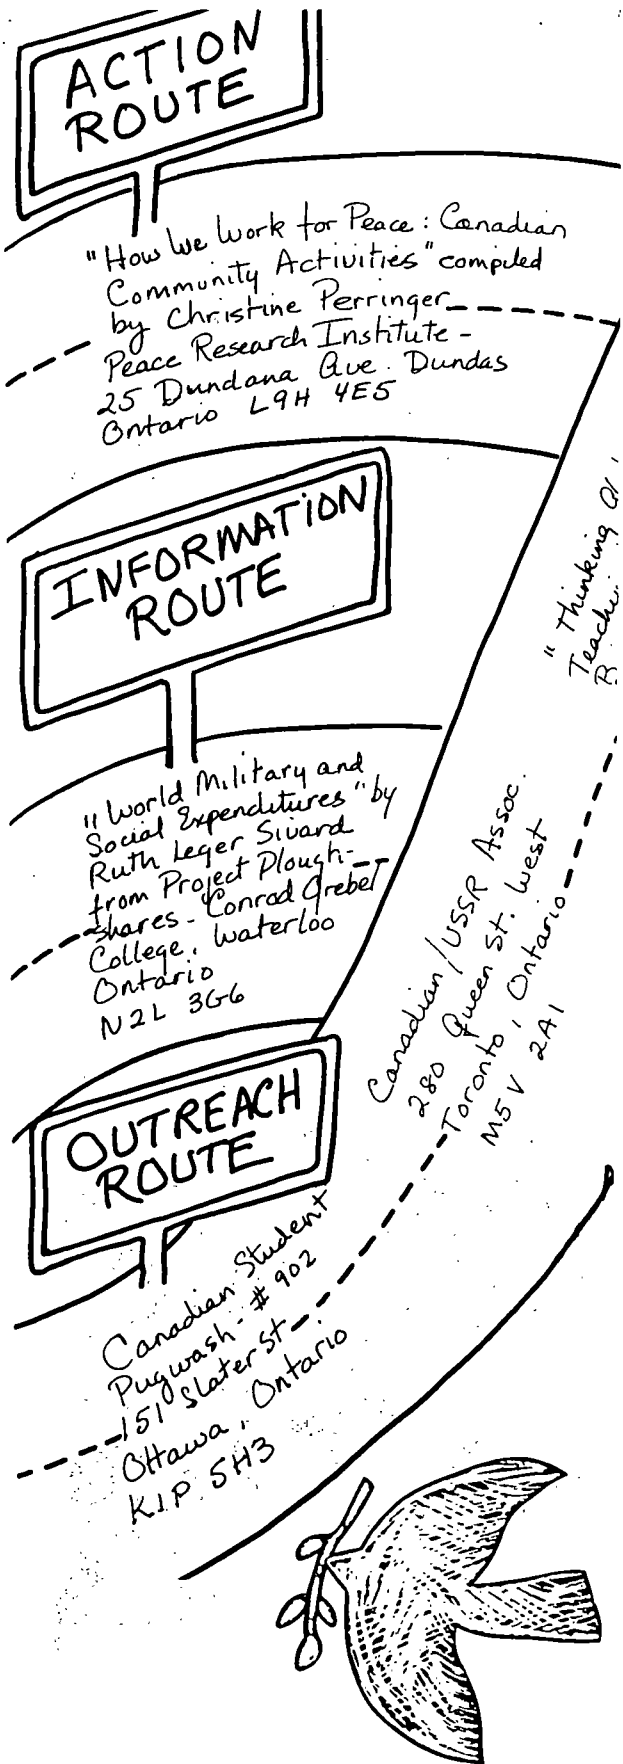 ACTION
ROUTE
"How We Work for Peace: Canadian
Community Activities" compiled
by Christine Perringer
Peace Research Institute -
25 Dundana Ave. Dundas
Ontario L9H 4E5
INFORMATION
ROUTE
"World Military and
Social Expenditures" by
Ruth Leger Sivard
from Project Plough-
shares - Conrad Grebel
College, Waterloo
Ontario
N2L 3G6
"Thinking
Canadian/USSR Assoc.
280 Queen St. West
Toronto, Ontario
M5V 2A1
OUTREACH
ROUTE
Canadian Student
Pugwash - # 902
151 Slater St
Ottawa, Ontario
K1P 5H3